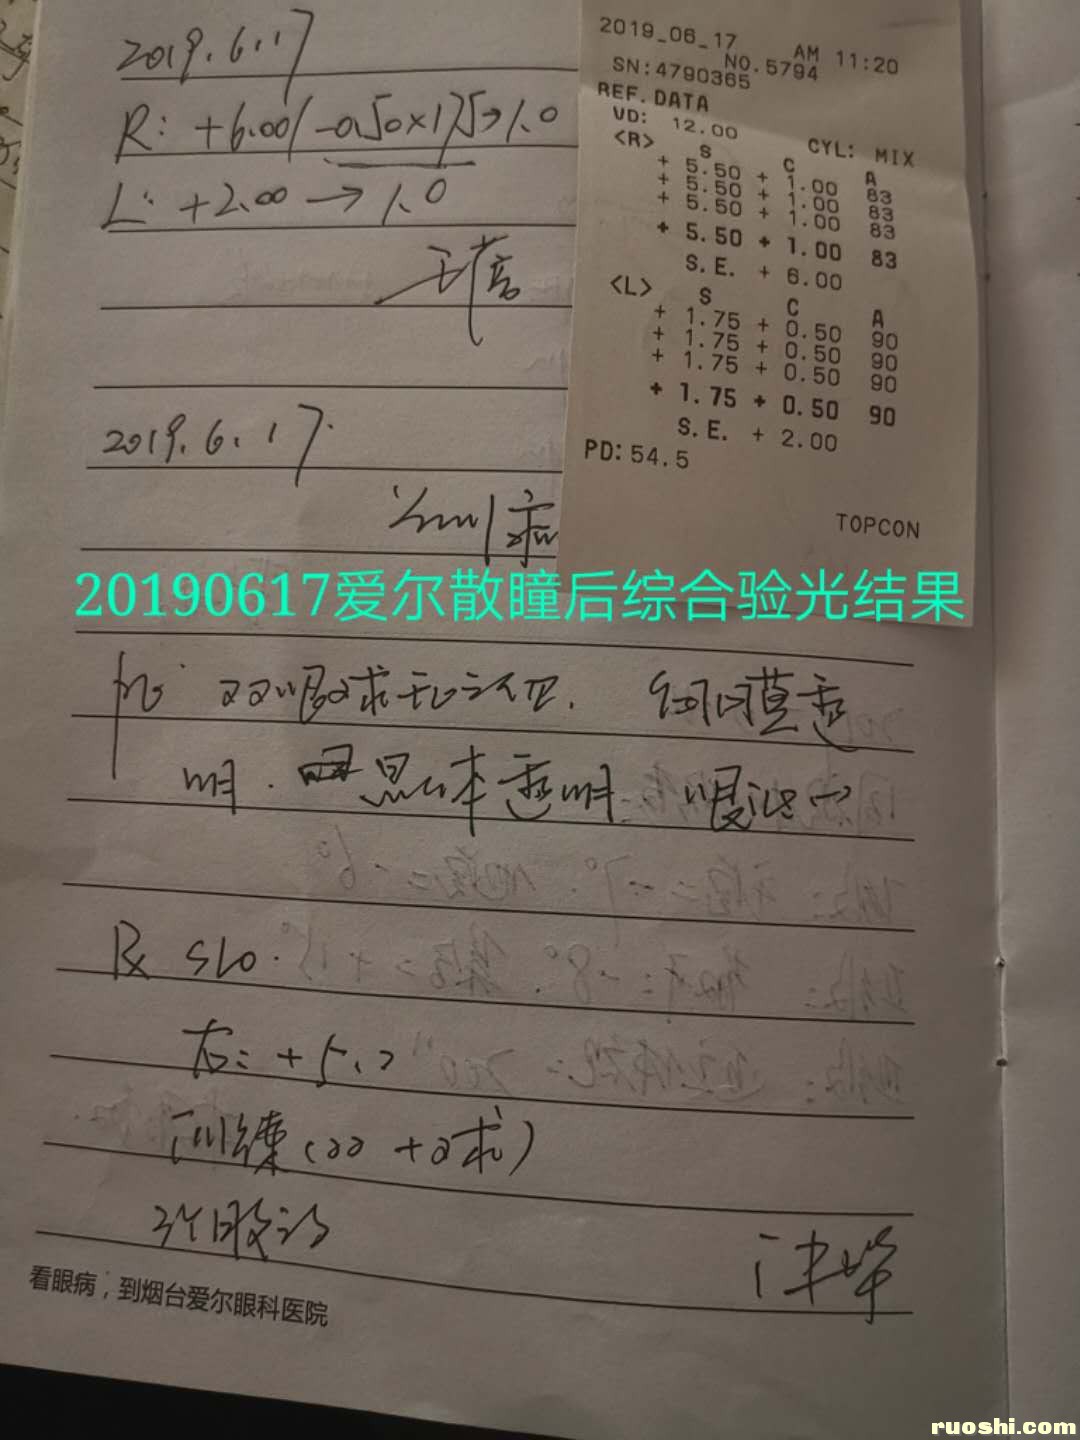 2019.6.17
R: +6.00/-0.50×175→1.0
L: +2.00→1.0
2019_06_17 AM 11:20
NO.5794
SN:4790365
REF.DATA
VD: 12.00 CYL: MIX
<R> S C A
+ 5.50 + 1.00 83
+ 5.50 + 1.00 83
+ 5.50 + 1.00 83
+ 5.50 + 1.00 83
S.E. + 6.00
<L> S C A
+ 1.75 + 0.50 90
+ 1.75 + 0.50 90
+ 1.75 + 0.50 90
+ 1.75 + 0.50 90
S.E. + 2.00
PD: 54.5
TOPCON
2019.6.17.
20190617爱尔散瞳后综合验光结果
双眼球无 角膜透
明. 晶体透明 眼
右: +5.
训练
看眼病,到烟台爱尔眼科医院
ruoshi.com